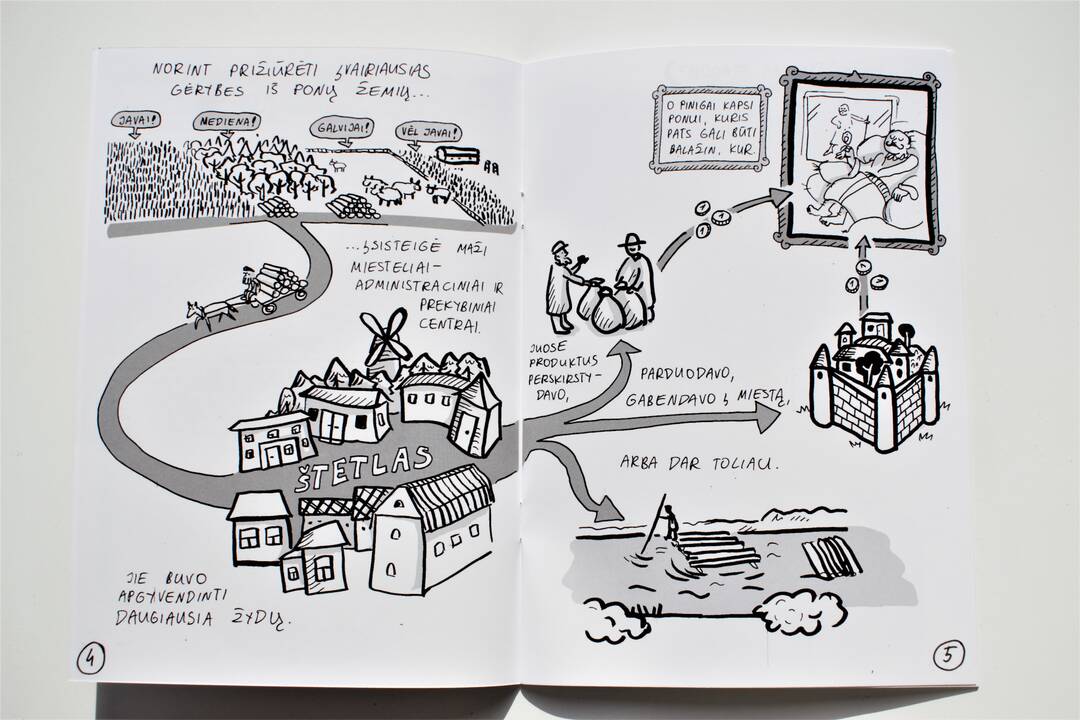 NORINT PRIŽIŪRĖTI ĮVAIRIAUSIAS
GĖRYBES IŠ PONŲ ŽEMIŲ...
JAVAI!
MEDIENA!
GALVIJAI!
VĖL JAVAI!
...ĮSISTEIGĖ MAŽI
MIESTELIAI-
ADMINISTRACINIAI IR
PREKYBINIAI
CENTRAI.
ŠTETLAS
JIE BUVO
APGYVENDINTI
DAUGIAUSIA ŽYDŲ.
4
O PINIGAI KAPSI
PONUI, KURIS
PATS GALI BŪTI
BALAŽIN, KUR.
1
1
1
JUOSE
PRODUKTUS
PERSKIRSTY-
DAVO,
PARDUODAVO,
GABENDAVO Į MIESTĄ,
ARBA DAR TOLIAU.
5